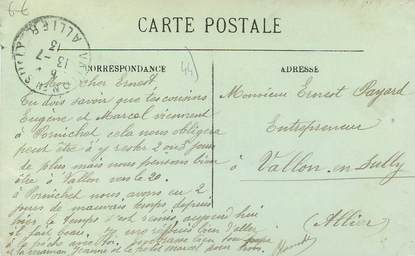 6-6
CARTE POSTALE
CORRESPONDANCE
ADRESSE
44
ALLIER
13 -7
13
cher Ernest
Tu dois savoir que tes cousins
Eugène et Marcel viennent
à Pornichet cela nous obligera
peut être à y rester 2 ou 3 jours
de plus mais nous pensons bien
être à Vallon vers le 20.
à Pornichet nous avons eu 2
jours de mauvais temps depuis
hier le temps s'est remis aujourd hui
il fait beau.
à la pêche
et ta maman Jeanne et le petit marcel
Monsieur Ernest Payard
Entrepreneur
à Vallon en Sully
(Allier)